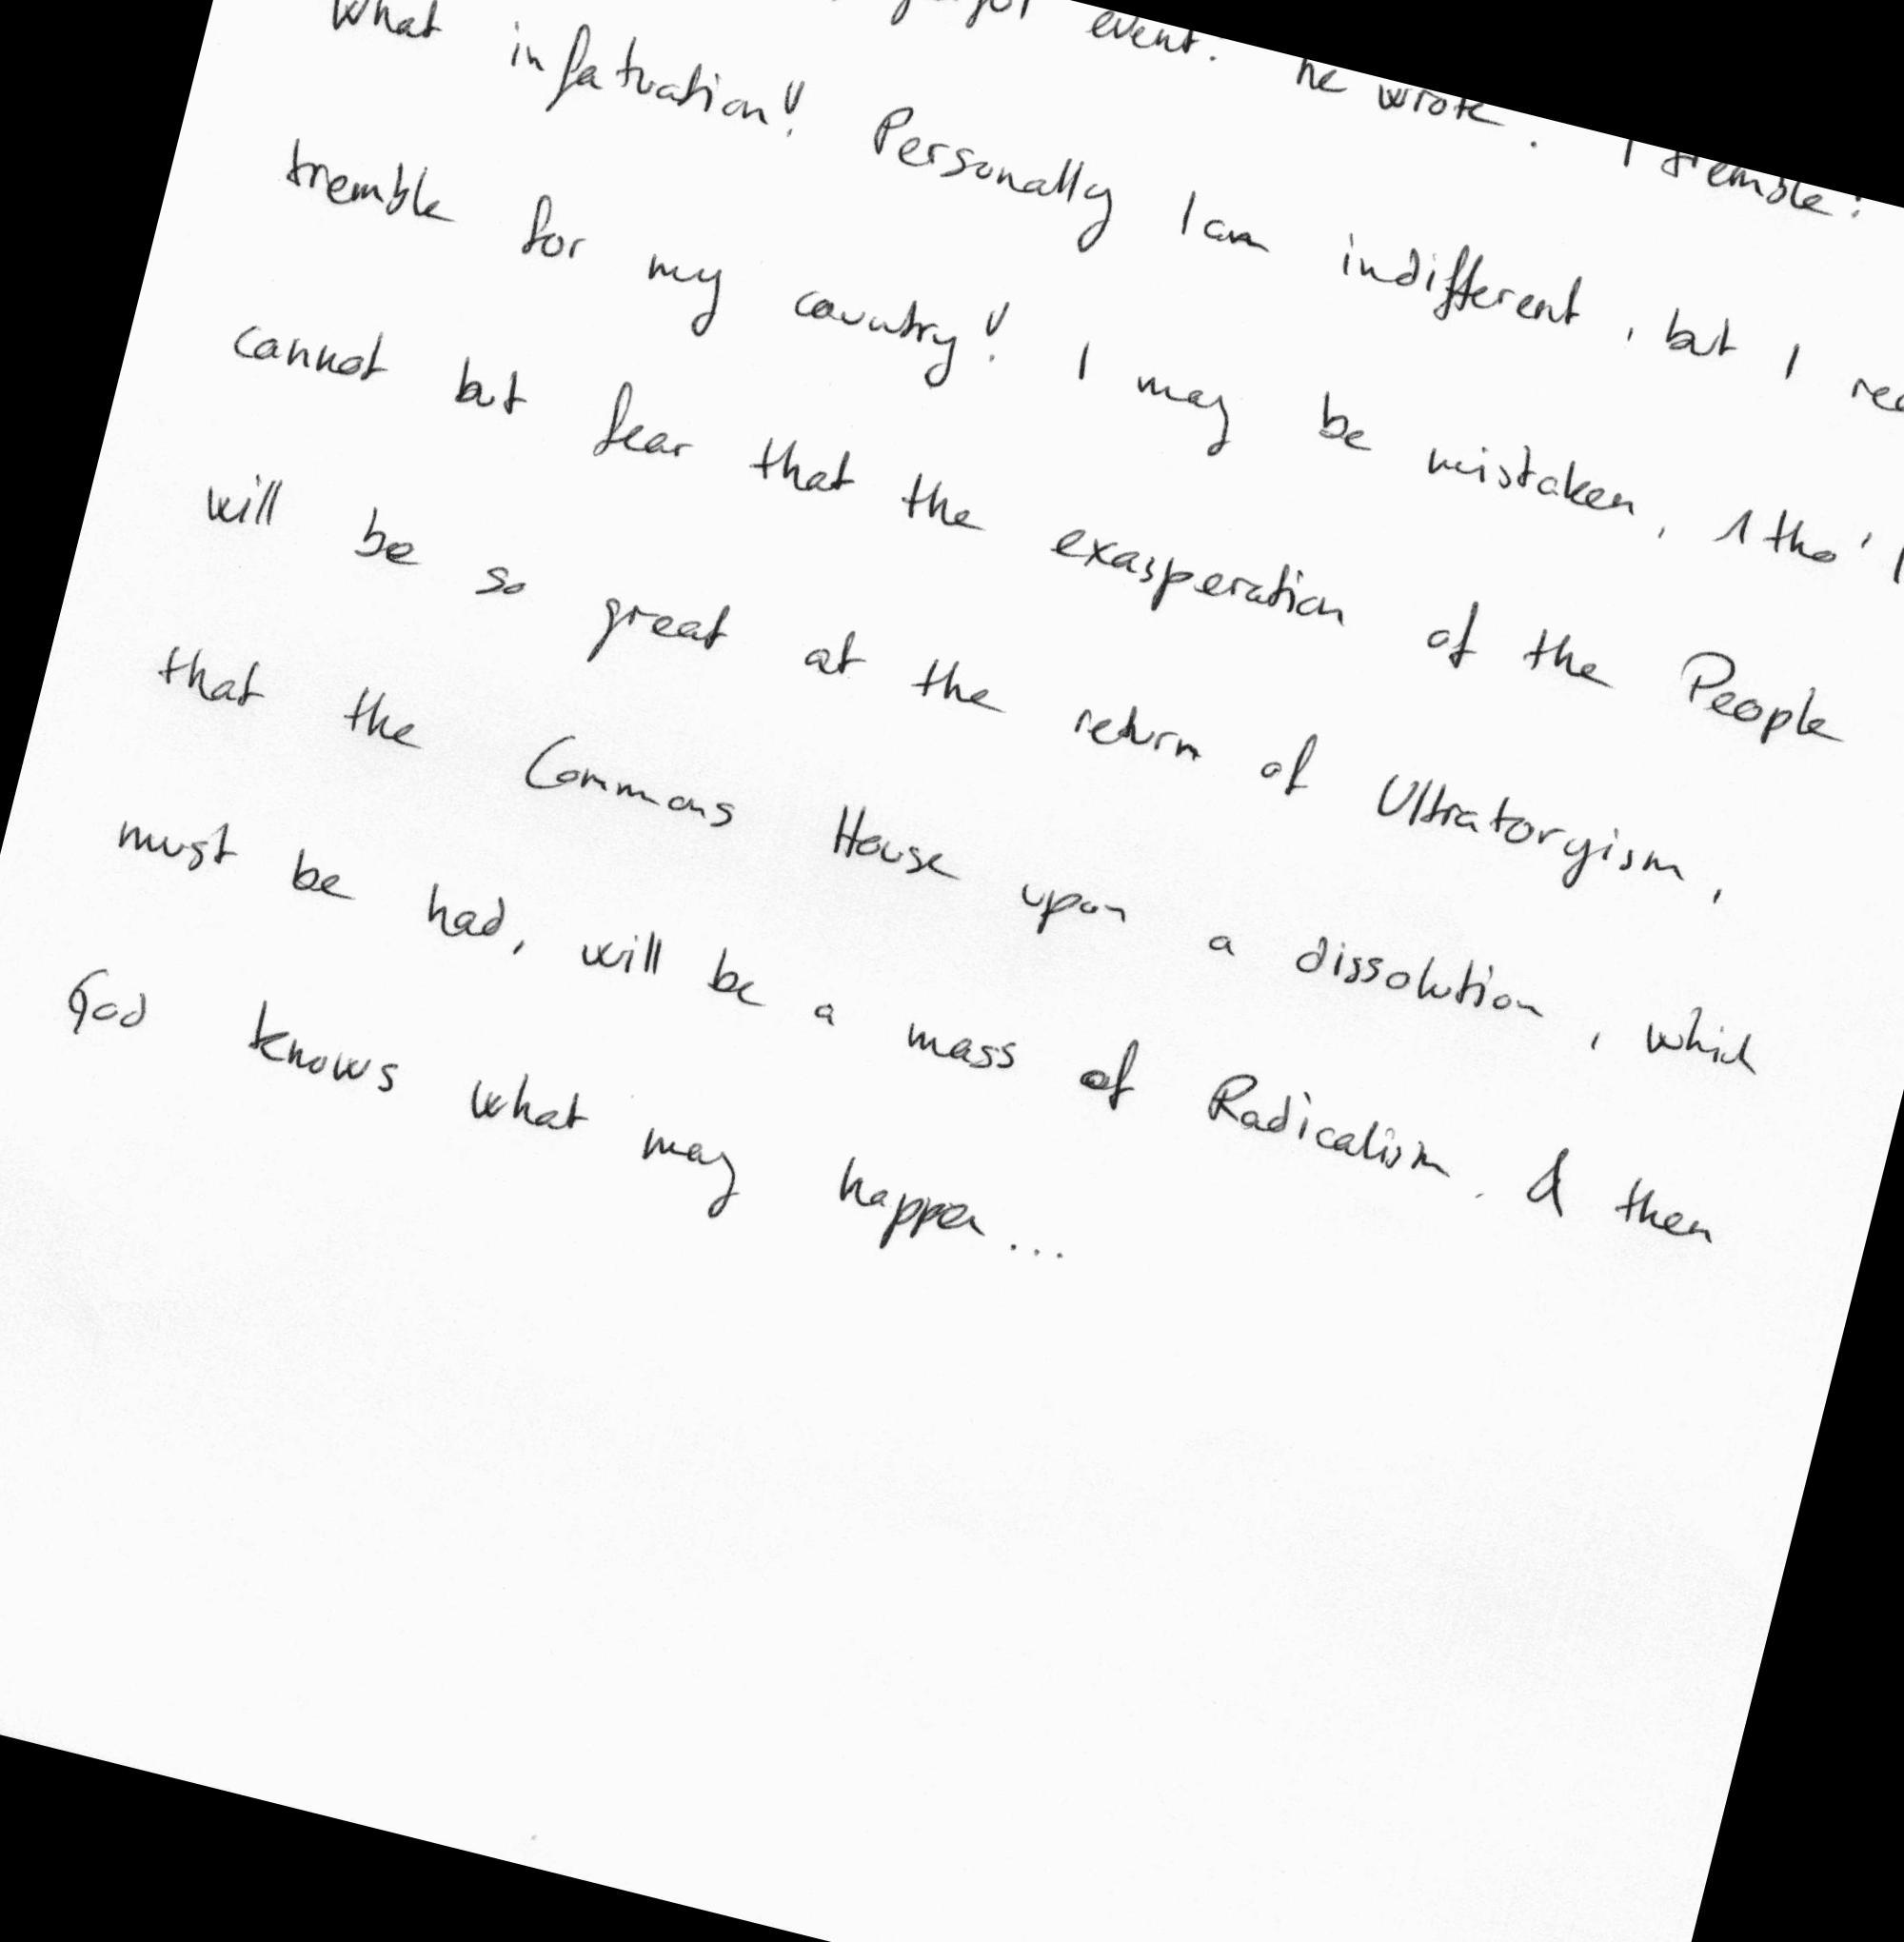 event. he wrote. I tremble:
What infatuation! Personally I am indifferent, but I
tremble for my country! I may be mistaken, 1 tho' I
cannot but fear that the exasperation of the People
will be so great at the return of Ultratoryism,
that the Commons House upon a dissolution, which
must be had, will be a mass of Radicalism. & then
God knows what may happen...